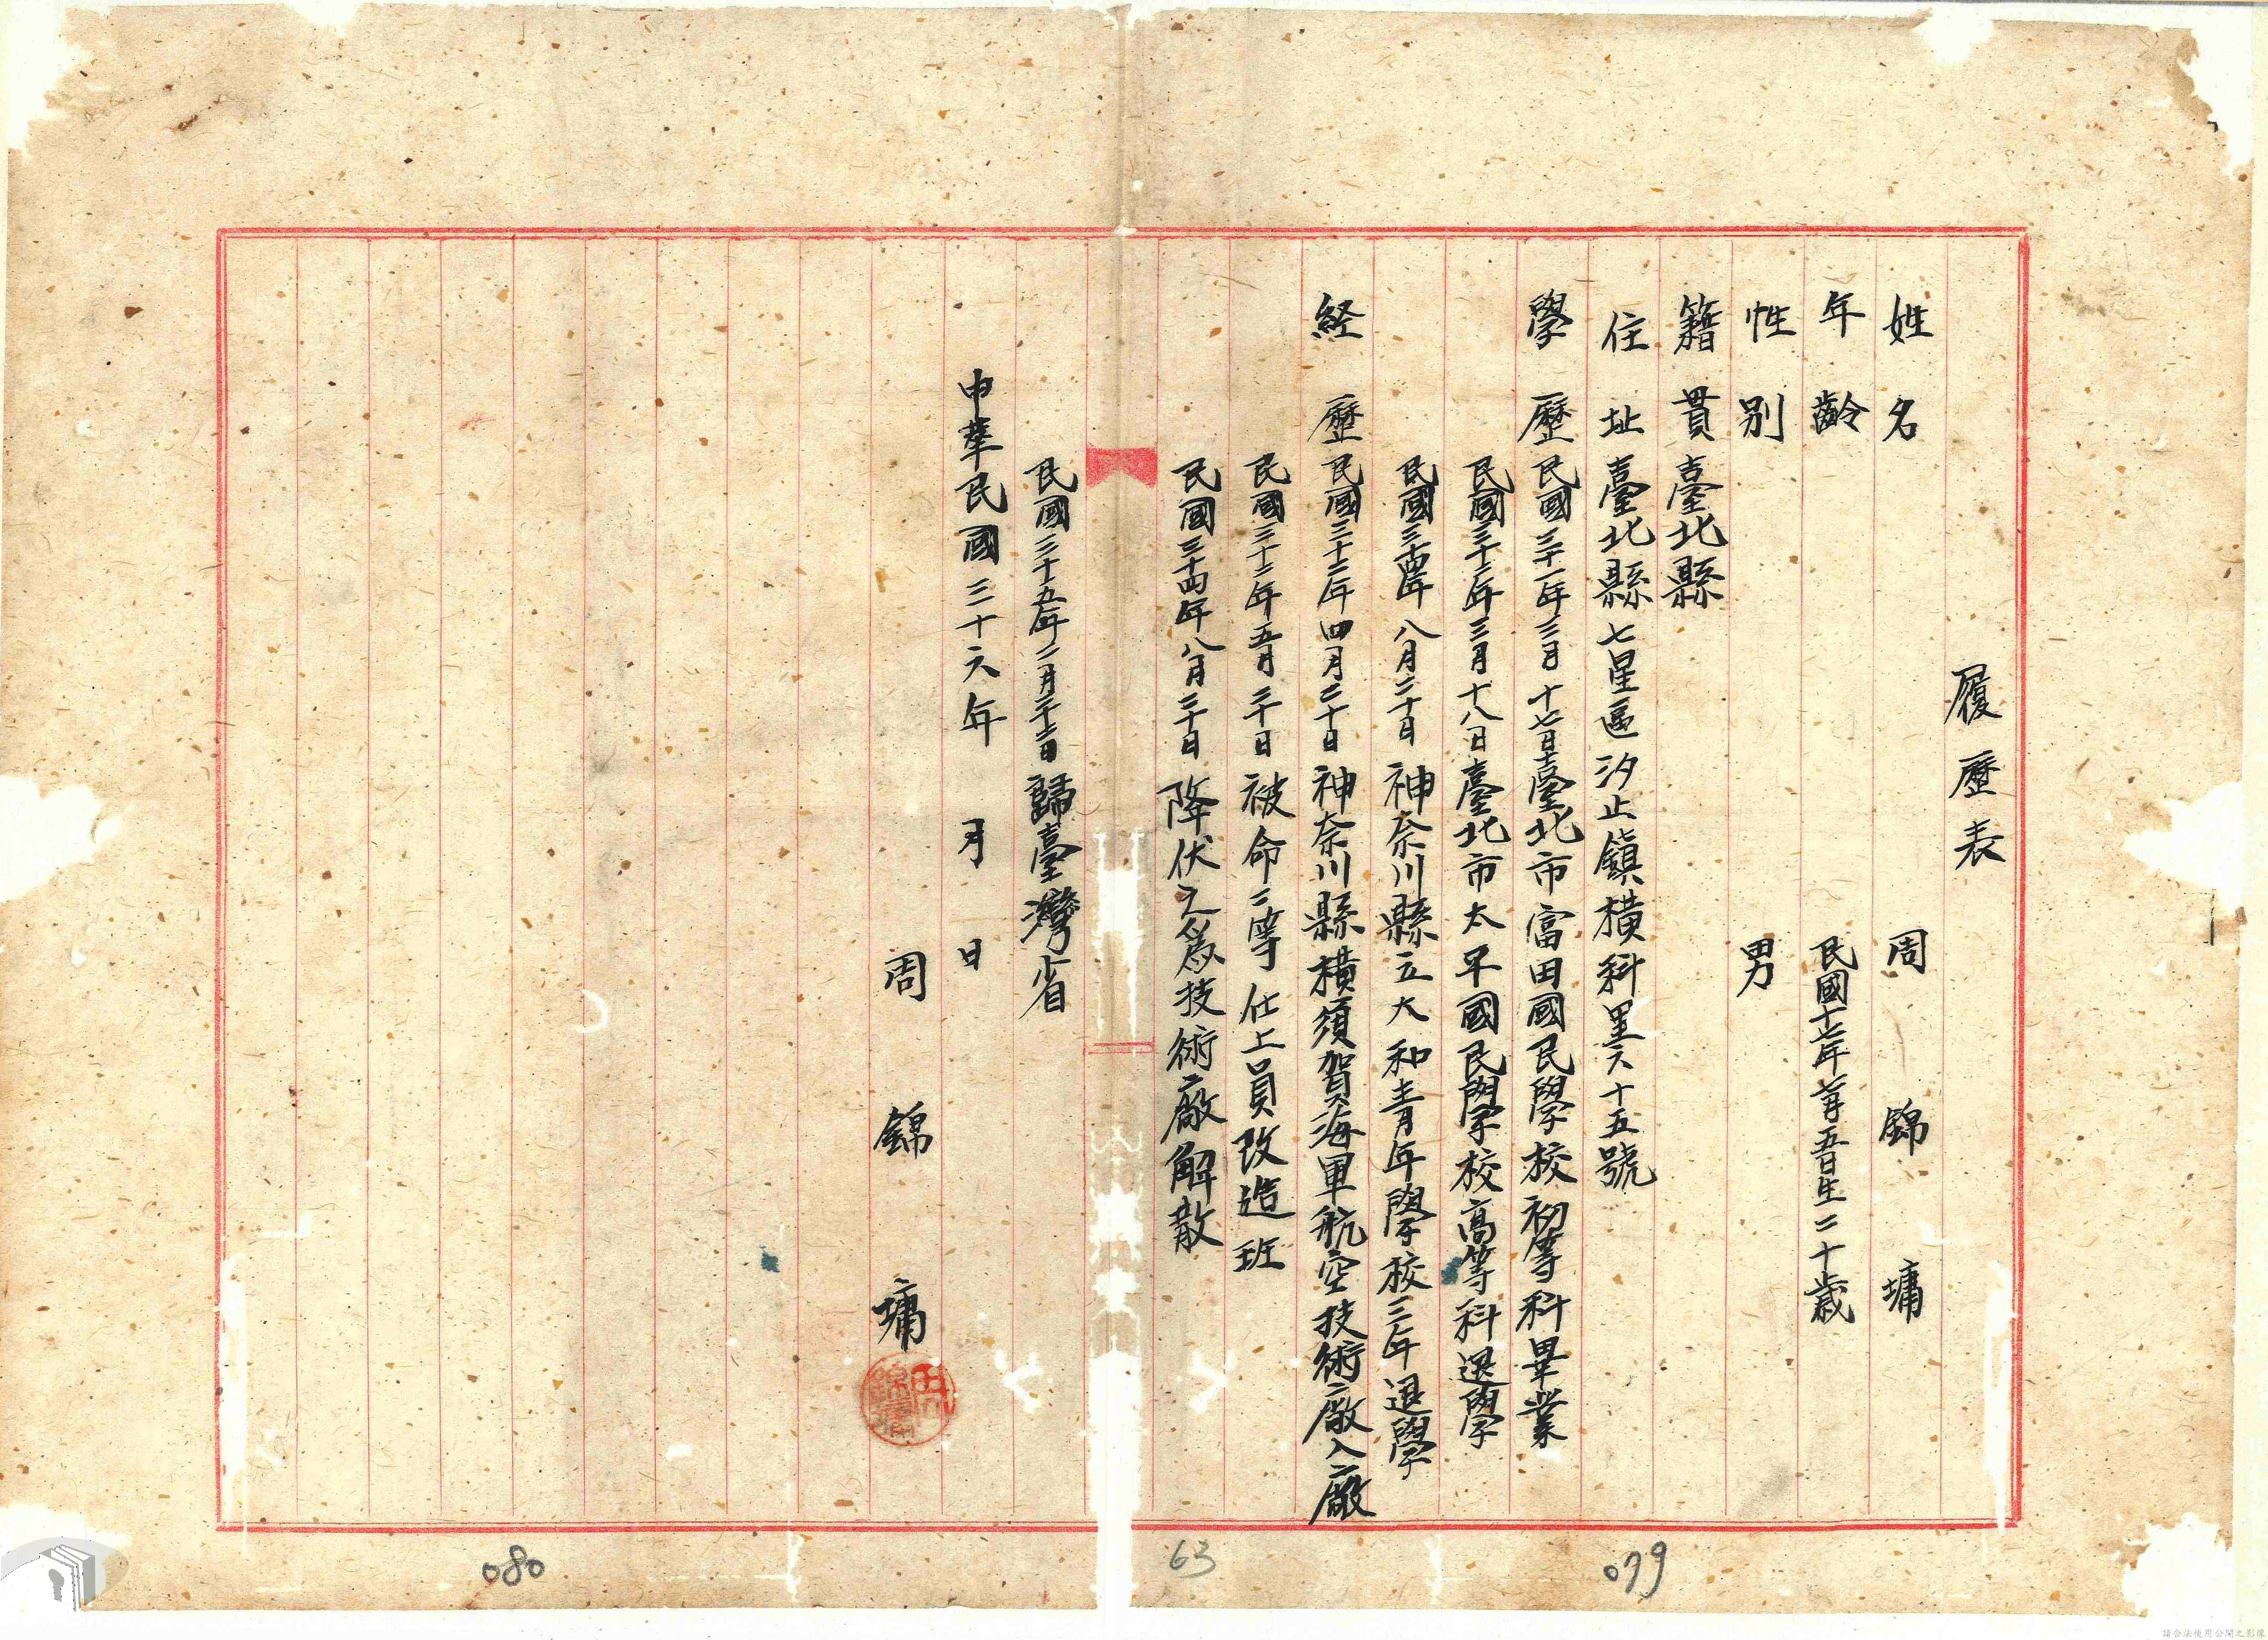 履歷表
姓名 周錦墉
年齡 民國十七年七月十五日生二十歲
性別 男
籍貫 臺北縣
住址 臺北縣七星區汐止鎮橫科里六十五號
學歷 民國三十一年三月十七日臺北市富田國民學校初等科畢業
民國三十二年三月十八日臺北市太平國民學校高等科退學
民國三十四年八月二十日神奈川縣立大和青年學校三年退學
経歷 民國三十二年四月二十日神奈川縣橫須賀海軍航空技術廠入廠
民國三十三年五月三十日被命二等仕上員改造班
民國三十四年八月三十日降伏之爲技術廠解散
民國三十五年二月二十三日歸臺灣省
中華民國三十六年 月 日
周錦墉
079
63
080
請合法使用公開之影像